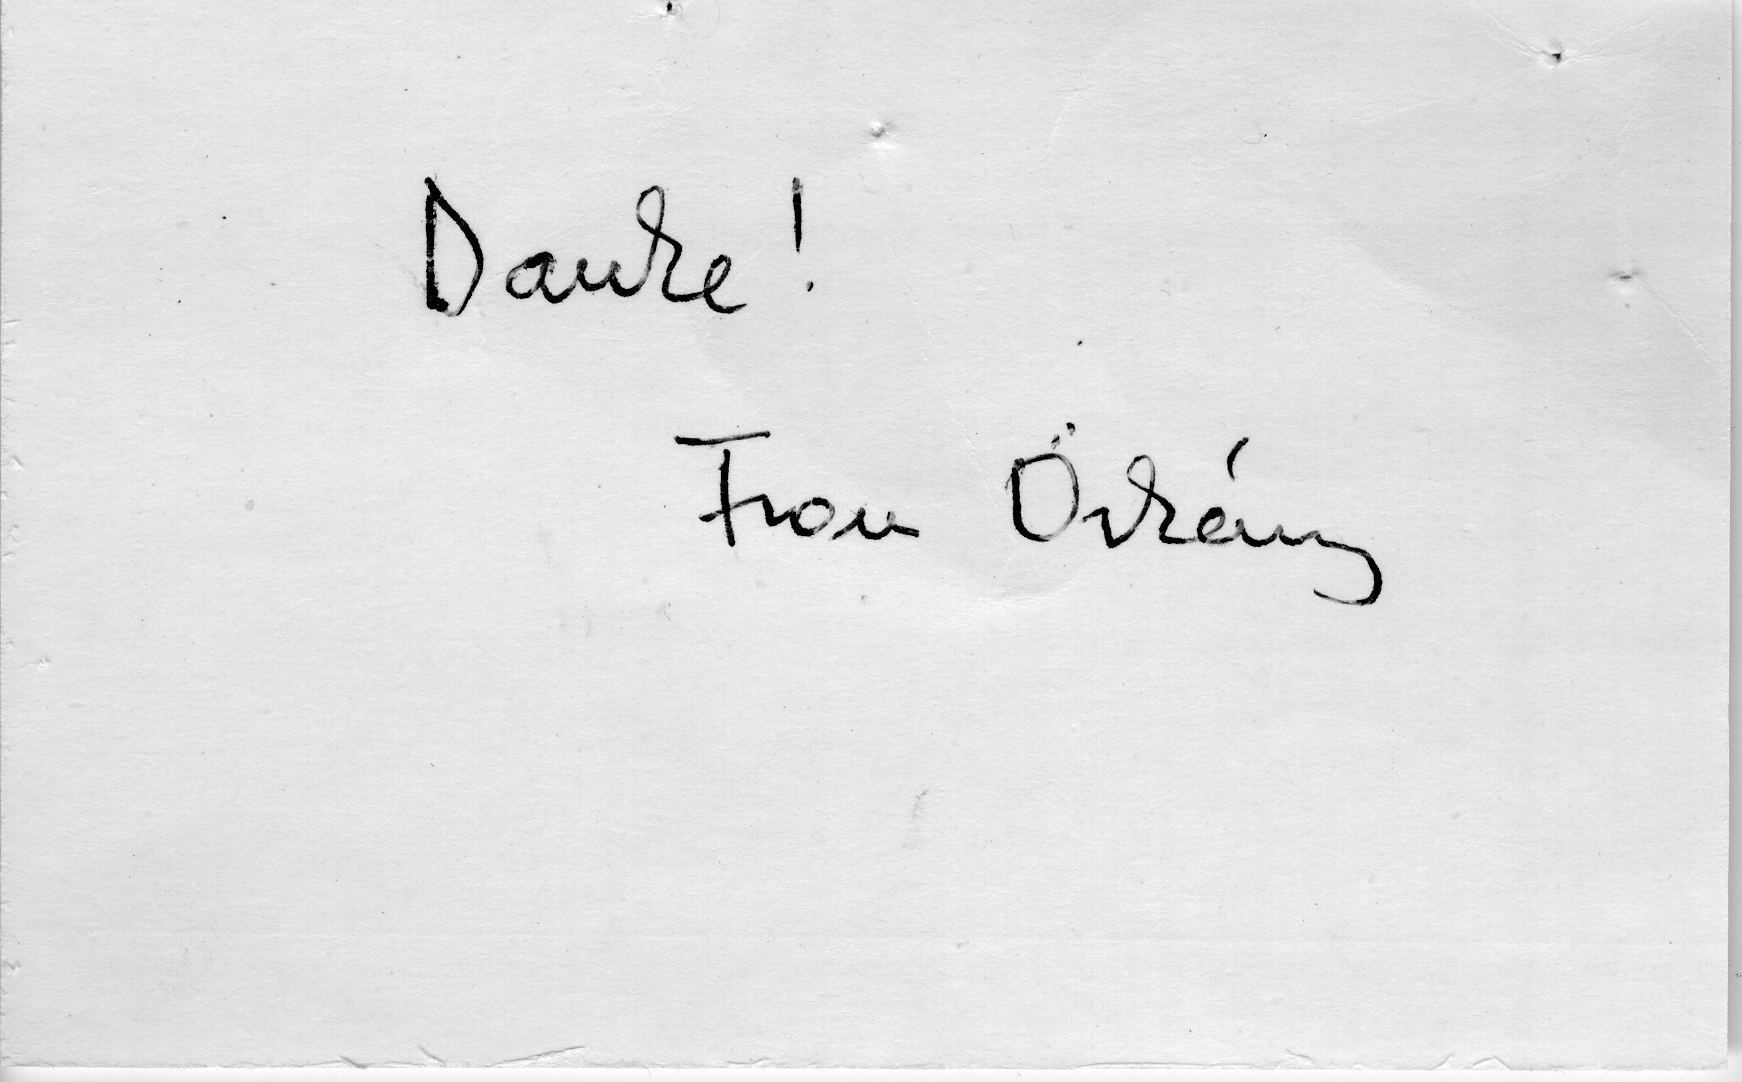 Danke!
Frau Örkény